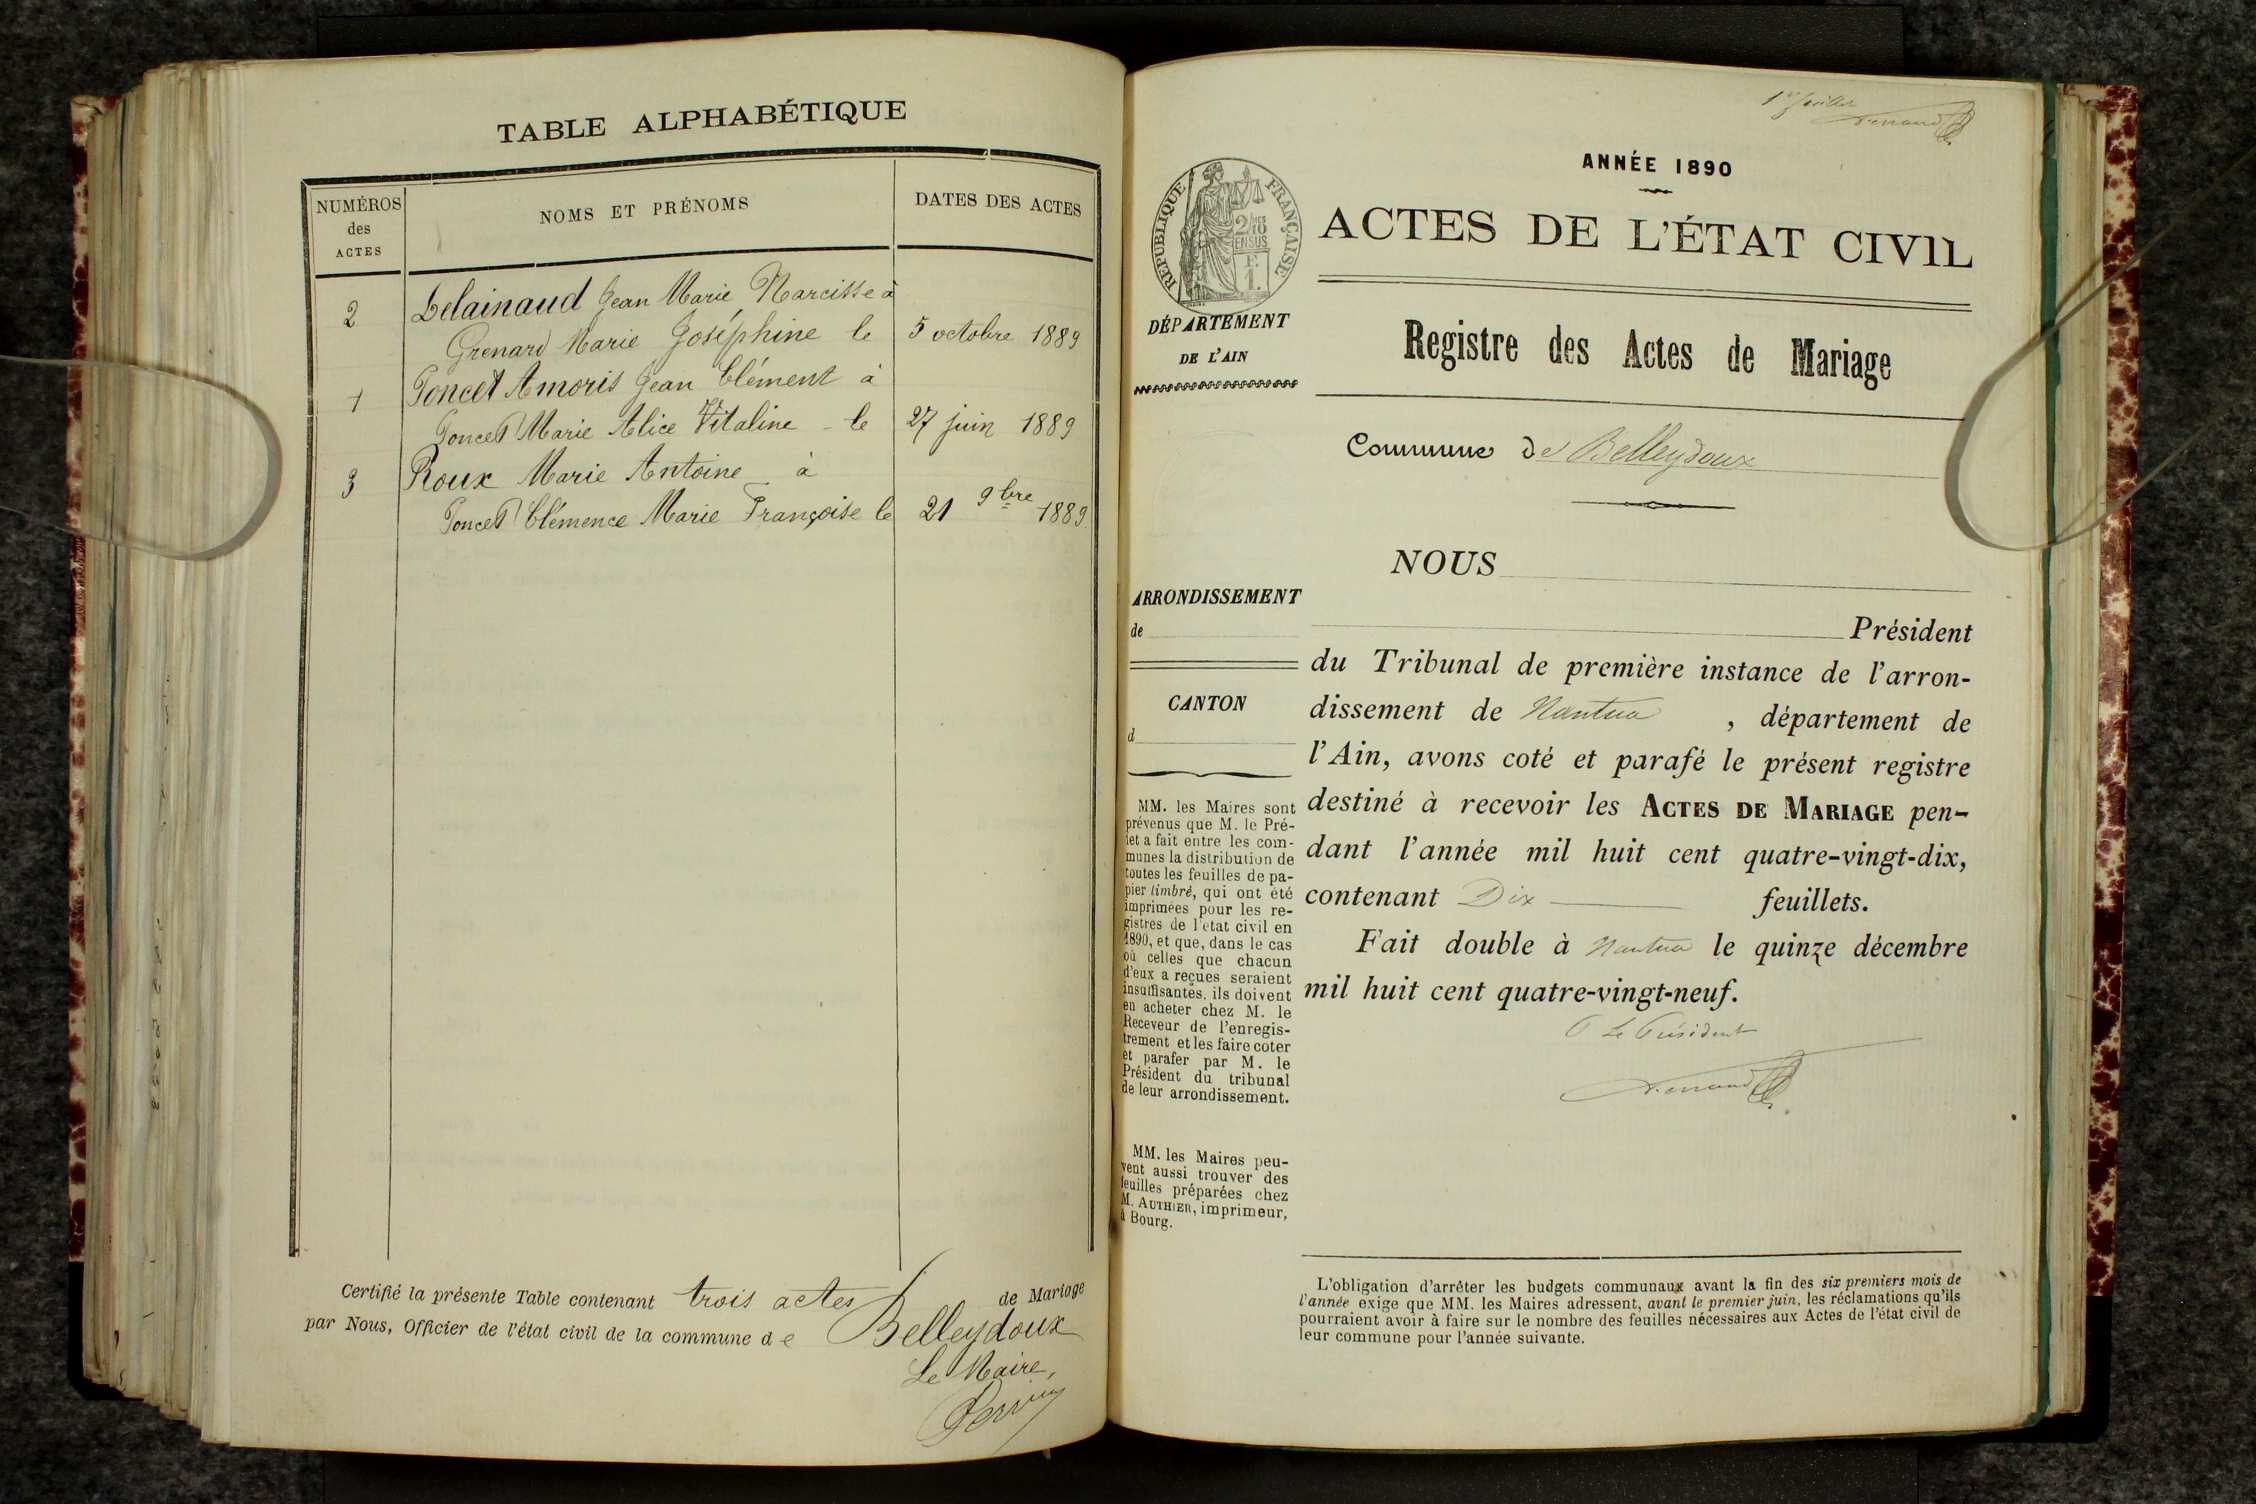 TABLE ALPHABÉTIQUE
NUMÉROS
des
ACTES
NOMS ET PRÉNOMS
DATES DES ACTES
2 Delainaud Jean Marie Narcisse à
Grenard Marie Joséphine le 5 octobre 1889
1 Poncet Amoris Jean Clément à
Poncet Marie Alice Vitaline - le 27 juin 1889
3 Roux Marie Antoine à
Poncet Clémence Marie Françoise le 21 9bre 1889
Certifié la présente Table contenant trois actes de Mariage
par Nous, Officier de l'état civil de la commune de Belleydoux
Le Maire,
1er feuillet
ANNÉE 1890
RÉPUBLIQUE FRANÇAISE
2/10
EN SUS
F.
1.
ACTES DE L'ÉTAT CIVIL
DÉPARTEMENT
DE L'AIN
Registre des Actes de Mariage
Commune de Belleydoux
NOUS
ARRONDISSEMENT
de
Président
du Tribunal de première instance de l'arron-
CANTON
dissement de Nantua , département de
d
l'Ain, avons coté et parafé le présent registre
destiné à recevoir les ACTES DE MARIAGE pen-
dant l'année mil huit cent quatre-vingt-dix,
contenant Dix feuillets.
Fait double à Nantua le quinze décembre
mil huit cent quatre-vingt-neuf.
Le Président
MM. les Maires sont
prévenus que M. le Pré-
fet a fait entre les com-
munes la distribution de
toutes les feuilles de pa-
pier timbré, qui ont été
imprimées pour les re-
gistres de l'état civil en
1890, et que, dans le cas
où celles que chacun
d'eux a reçues seraient
insuffisantes, ils doivent
en acheter chez M. le
Receveur de l'enregis-
trement et les faire coter
et parafer par M. le
Président du tribunal
de leur arrondissement.
MM. les Maires peu-
vent aussi trouver des
feuilles préparées chez
M. AUTHIER, imprimeur,
à Bourg.
L'obligation d'arrêter les budgets communaux avant la fin des six premiers mois de
l'année exige que MM. les Maires adressent, avant le premier juin, les réclamations qu'ils
pourraient avoir à faire sur le nombre des feuilles nécessaires aux Actes de l'état civil de
leur commune pour l'année suivante.